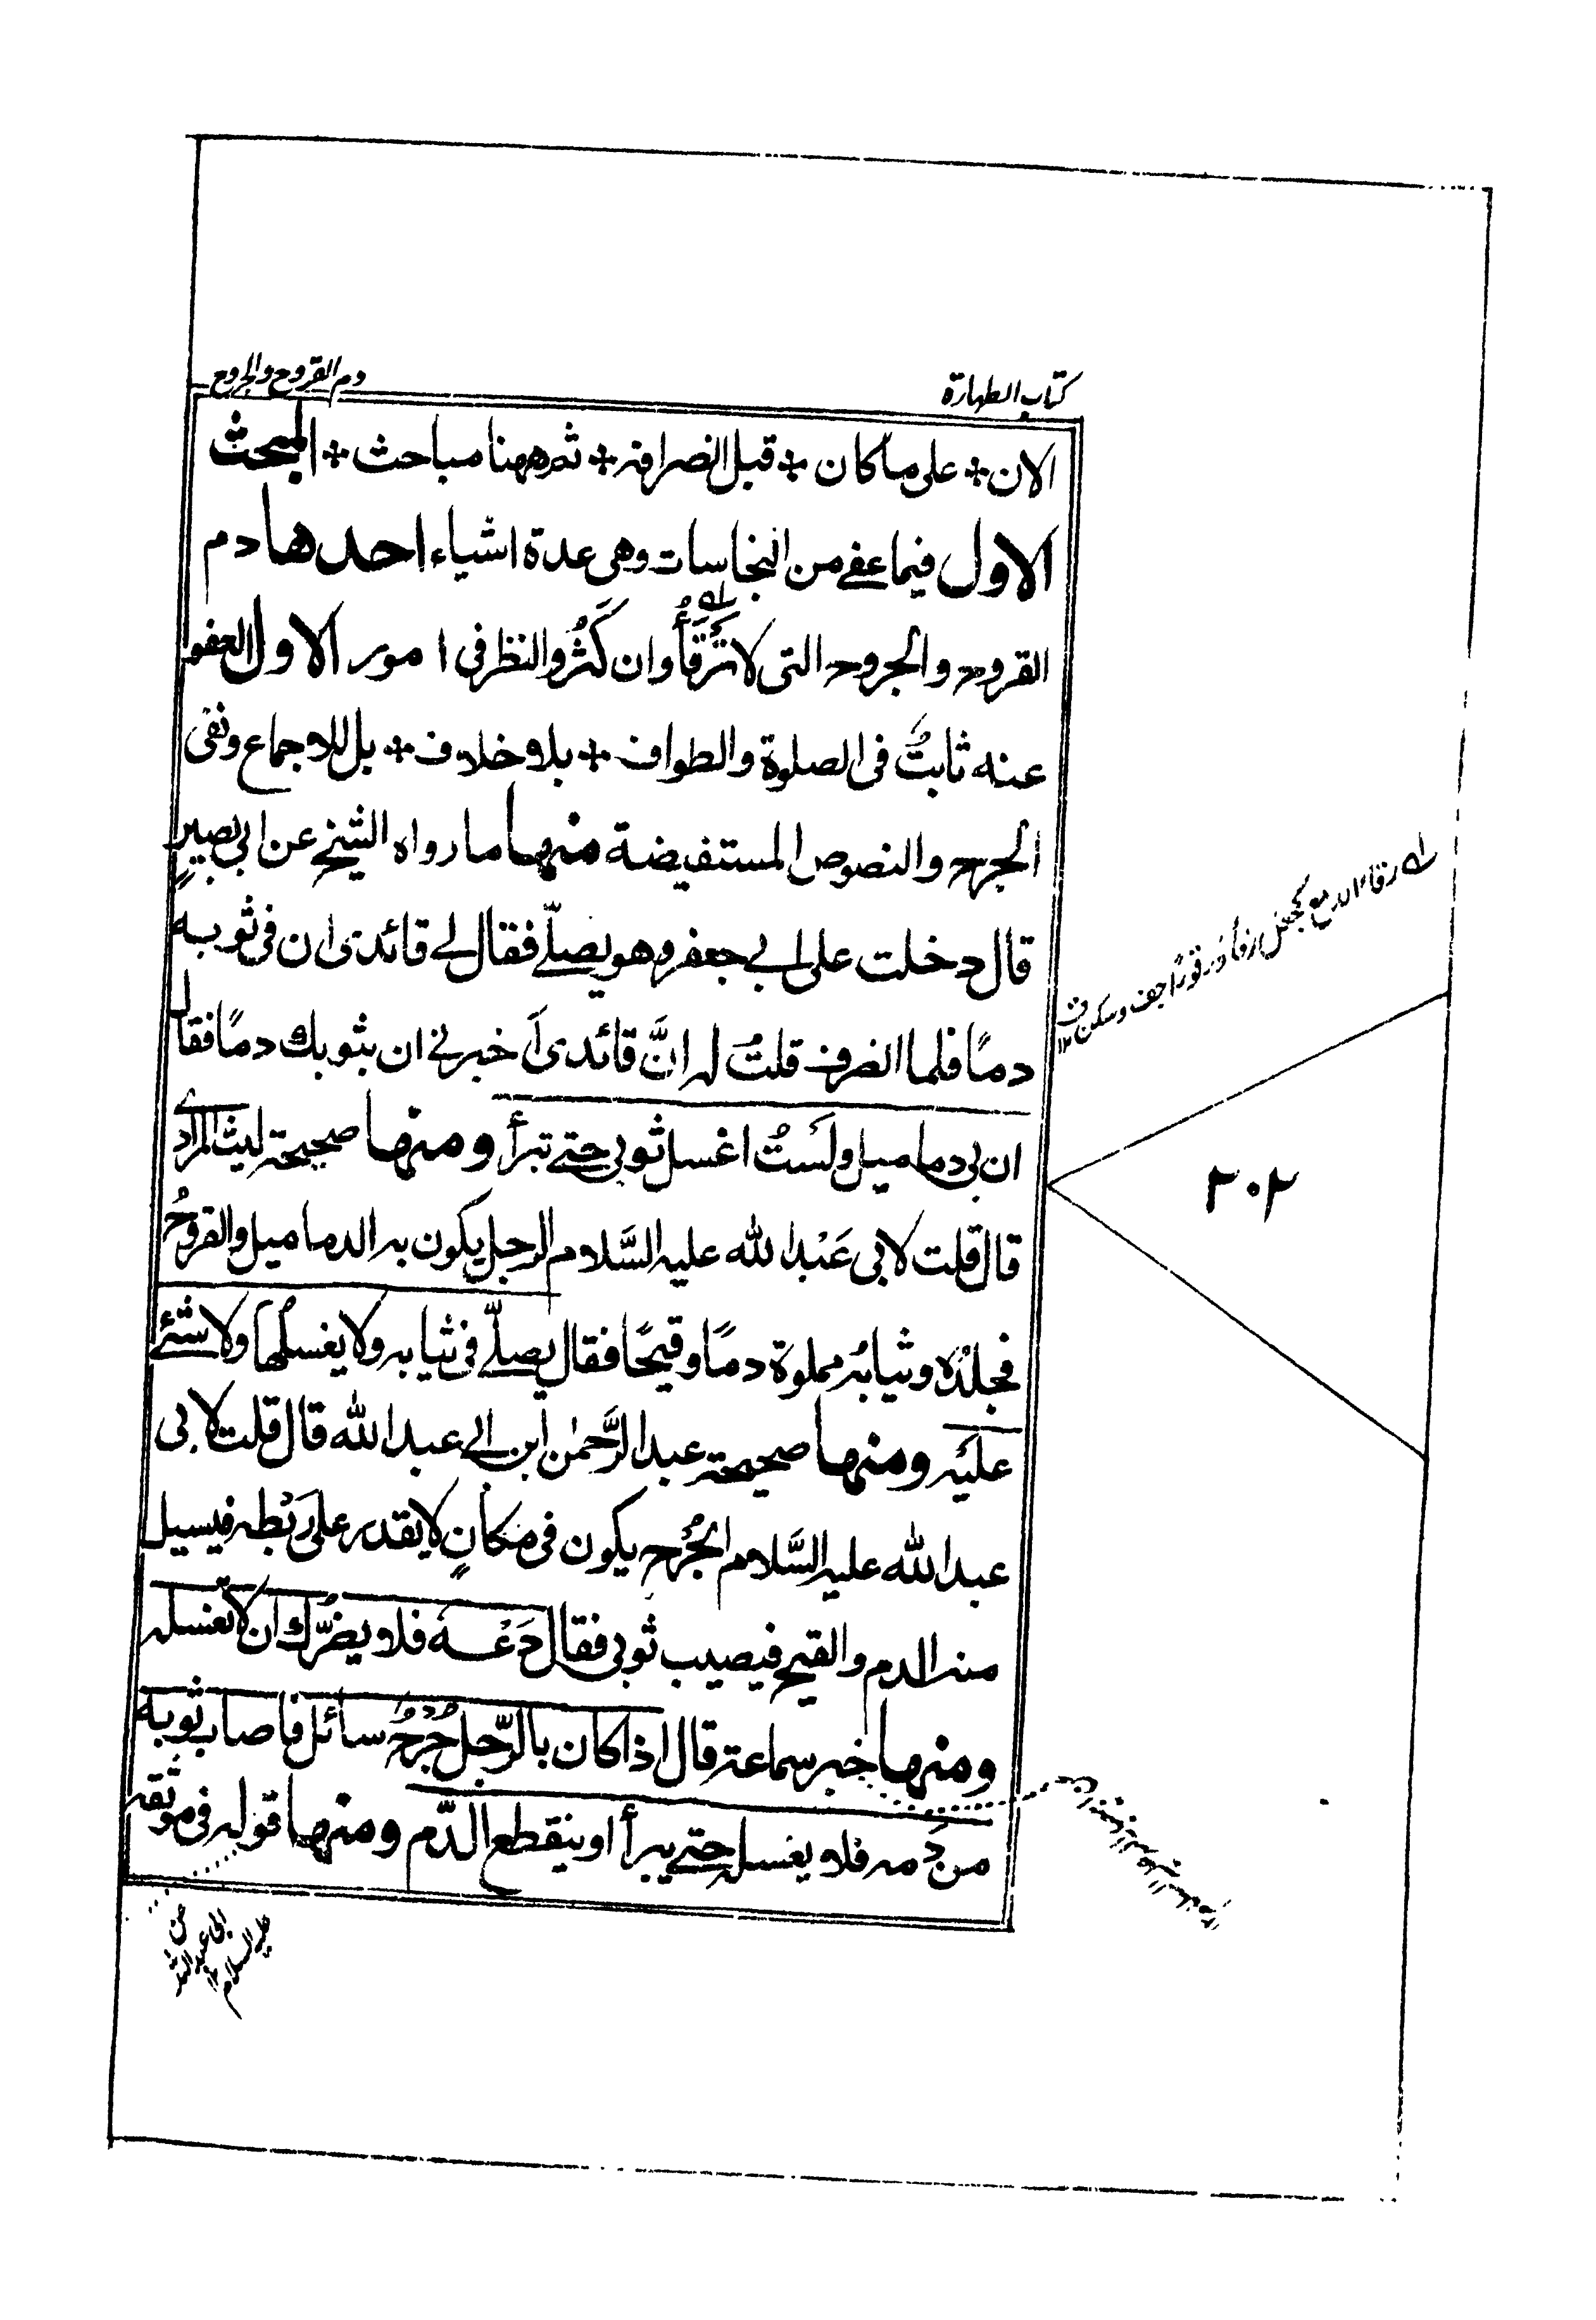 كتاب الطهارة
دم القروح والجروح
الان ÷ على ما كان ÷ قبل انصرافه ÷ ثم ههنا مباحث ÷ المبحث
الاول فيما عفى من النجاسات وهى عدة اشياء احدها دم
القروح والجروح التى لا تَرْقَأُ وان كَثُرَ والنظر فى امور الاول العفو
عنه ثابتٌ فى الصلوة والطواف ÷ بلا خلاف ÷ بل للاجماع ونفى
الحرج والنصوص المستفيضة منها ما رواه الشيخ عن ابى بصيرٍ
قال دخلت على ابى جعفر وهو يصلّى فقال لى قائدى ان فى ثوبه
دمًا فلما انصرف قلتُ له انَّ قائدى اَخبرنى ان بثوبك دمًا فقال
ان بى دماميل ولَستُ اغسل ثوبى حتى تبرأ ومنها صحيحة ليث المرادى
قال قلت لابى عَبْد الله عليه السَّلام الرجل يكون به الدماميل والقروحُ
فجلدُه وثيابُه مملوة دمًا وقيحًا فقال يصلّى فى ثيابه ولا يغسلُها ولا شئ
عليَه ومنها صحيحة عبد الرَّحمٰن ابن ابى عبد الله قال قلت لابى
عبد الله عليه السَّلام الجُرْح يكون فى مكانٍ لا يقدر على رَبْطه فيسيل
منه الدم والقيح فيصيب ثوبى فقال دَعْه فلا يضُرّك ان لا تغسله
ومنها خبر سماعة قال اذا كان بالرّجل جُرْحٌ سائل فاصاب ثوبه
من دَمه فلا يغسله حتى يبرأ او ينقطع الدّم ومنها قوله فى موثقة
رقاء الدمع كجعل رقأ ورقوءًا جف وسكن ق ١٢
٢٠٢
عن
ابى عبد الله
عليه السلام ١٢